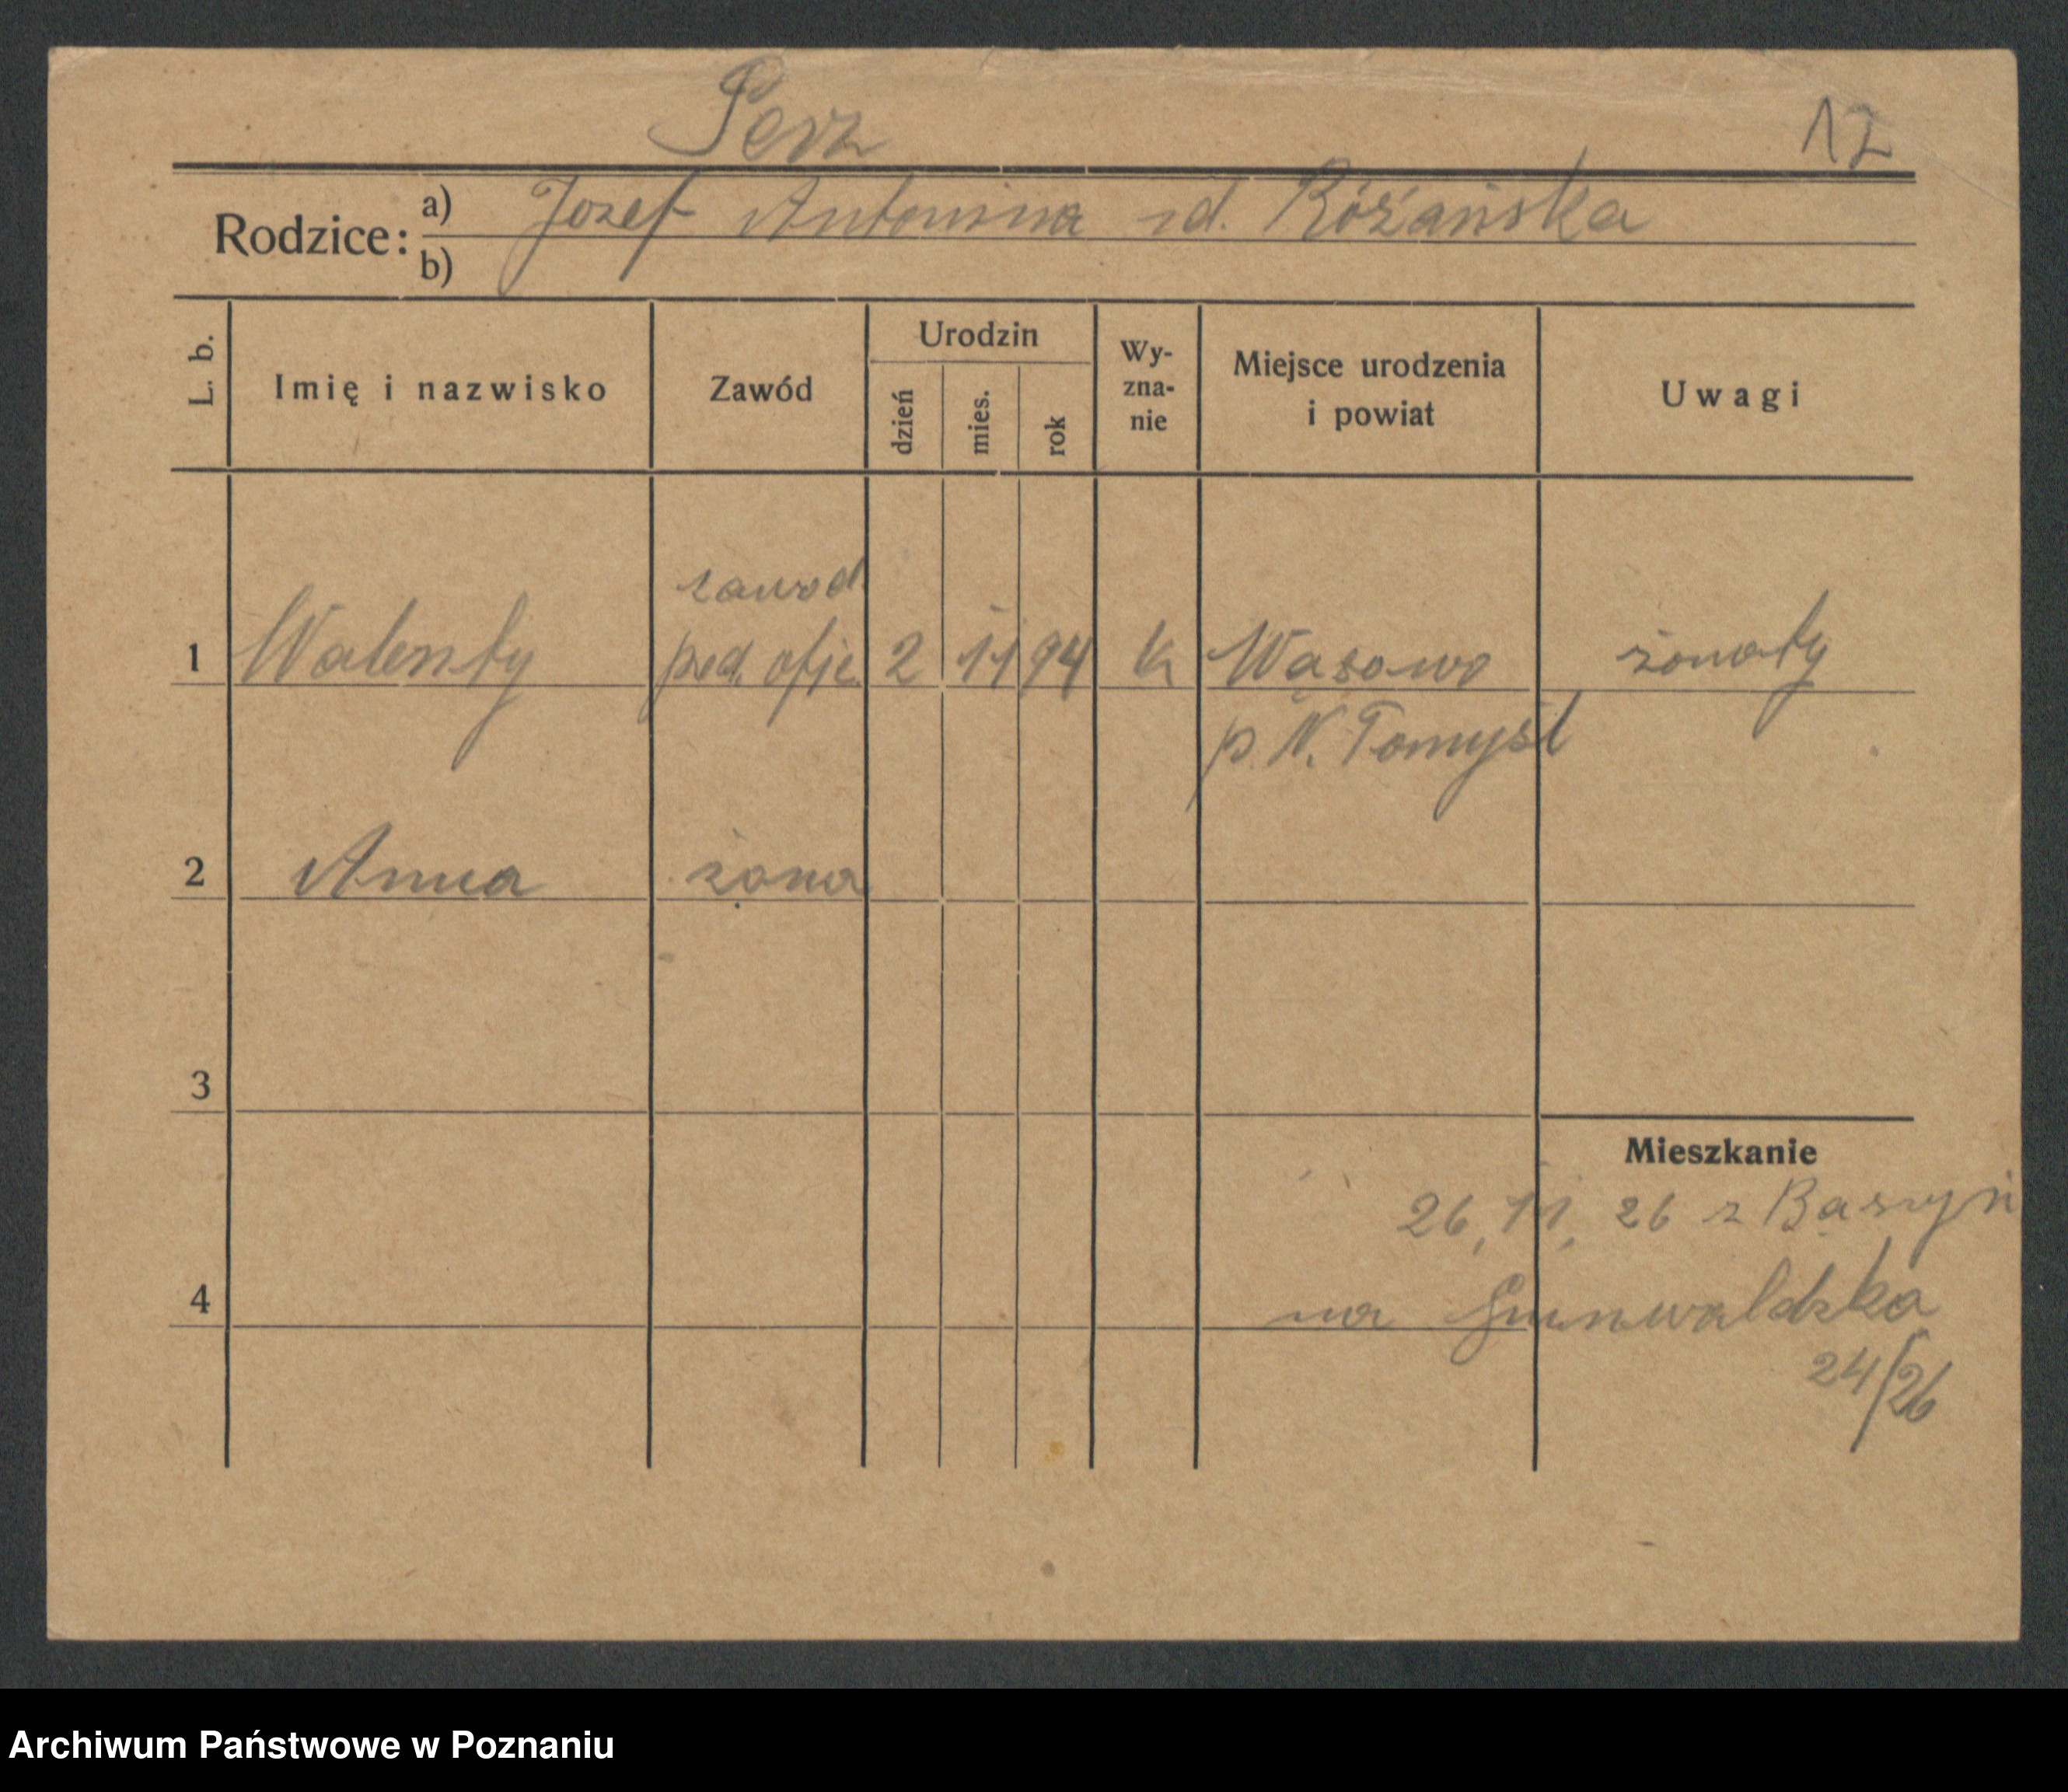 Perz
12
Rodzice:
a) Jozef Antonina zd. Różańska
b)
L. b.
Imię i nazwisko
Zawód
Urodzin
dzień
mies.
rok
Wy-
zna-
nie
Miejsce urodzenia
i powiat
Uwagi
zawod
1 Walenty pod. ofic. 2 11 94 k Wąsowo żonaty
p. N. Tomyśl
2 Anna żona
3
Mieszkanie
26, 11, 26 z
4 na Grunwaldzka
24/26
Archiwum Państwowe w Poznaniu